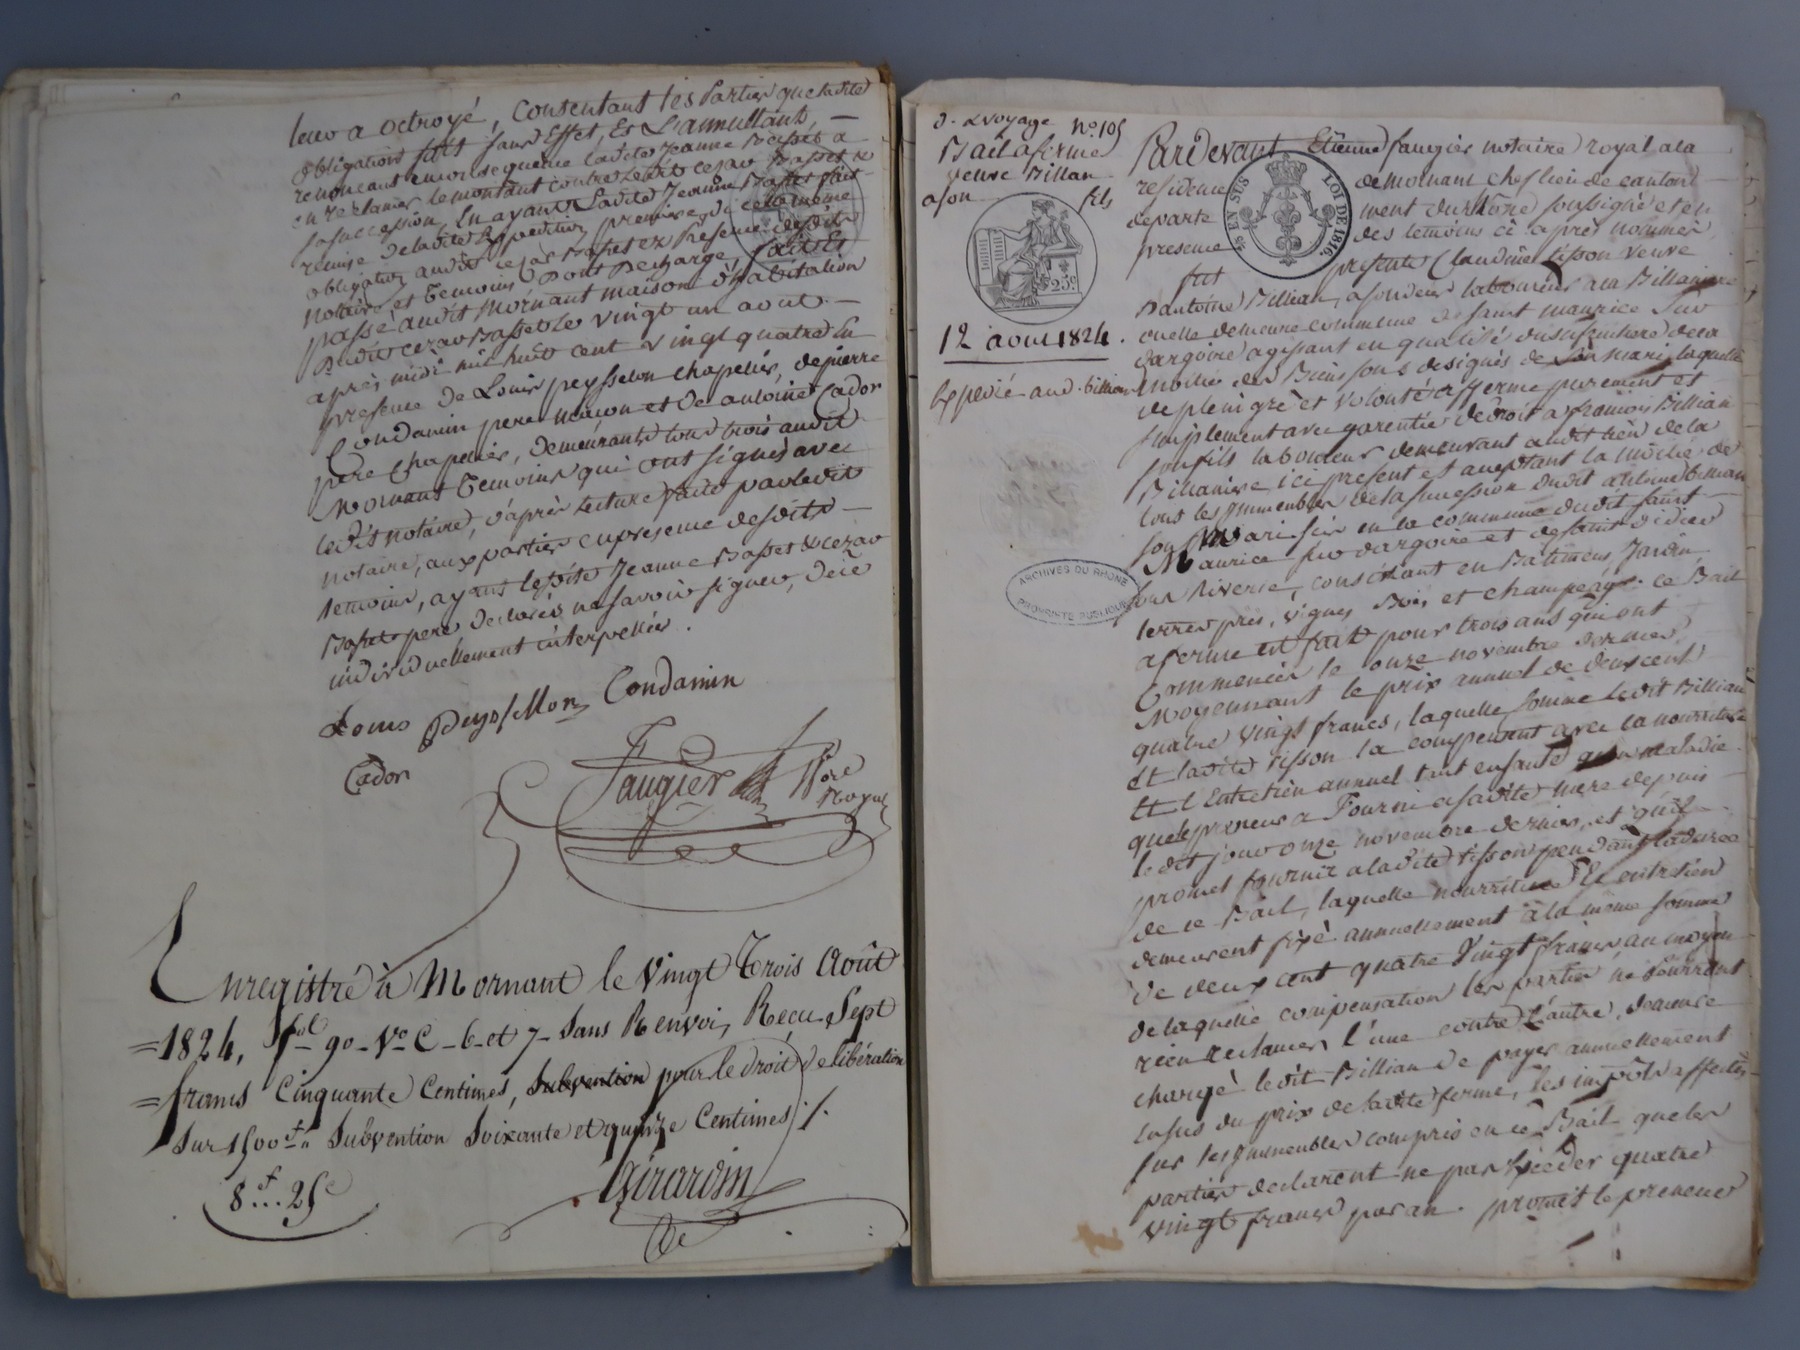 leur a octroyé, consentant les Parties que ladite
obligation soit sans Effet, Et L'annullant, —
renoncant en conséquence ladite Jeanne Basset a
en réclamer le montant contre ledit cezar Basset &
sa succession, En ayant Ladite Jeanne Basset fait
remise de ladite Expedition premiere de cette même
obligation audit cezar Basset en Presence desdits
notaire et temoins Dont Decharge, fait Et
passé audit Mornant maison d'habitation
Dudit cezar Basset le vingt un aout —
après midi mil huit cent vingt quatre En
presence de Louis peysselon chapelier, de pierre
Condamin pere maçon et de antoine Cador
pere chapelier, demeurants tous trois audit
Mornant temoins qui ont signés avec
ledit notaire, d'après lecture faite par ledit
notaire, aux parties en presence desdits —
temoins, ayant lesdits Jeanne Basset & cezar
Basset pere declarés ne savoir signer, de ce
individuellement interpellés.
Louis Peysselon Condamin
Cador
Faugier Nore
Royal
Enregistré à Mornant le vingt trois Août
=1824, fol 90 - Vo C - 6 et 7 - Sans Renvoi, Recu Sept
=francs Cinquante Centimes, Subvention pour le droit de libération
Sur 1500f Subvention Soixante et quinze Centimes ./.
8f...25c
Girardin
No 105
Bail a firme
veuve Billan
a son fils
25c
12 aout 1824.
Expedié aud. billian
ARCHIVES DU RHONE
PROPRIETE PUBLIQUE
Pardevant Etienne faugier notaire royal a la
residence de mornant chef lieu de canton
EN SUS LOI DE 1816
departe ment du rhône soussigné et en
presence des temoins ci après nommés
fut presente Claudine tisson veuve
D'antoine Billian, a son deces laboureur a la Billaniere
ou elle demeure commune de saint maurice sur
dargoire agissant en qualité d'usufruitiere de la
moitié des Biens sous designés de son mari, laquelle
de plein gré et volonté afferme purement et
simplement avec garentie de droit a françois Billian
son fils laboureur demeurant audit lieu de la
Billaniere, ici present et acceptant la moitié de
tous les immeubles de la succession dudit antoine billian
son mari sis en la commune dudit saint —
Maurice sur dargoire et de saint didier
sous Riverie, consistant en Batimens, Jardin
terres, prés, vignes Bois et champeage. ce Bail
a ferme est fait pour trois ans qui ont
Commencés le onze novembre dernier
Moyennant le prix annuel de deux cent
quatre vingt francs, laquelle somme ledit Billian
Et ladite tisson la compensent avec la nourriture
Et l'Entretien annuel tant en santé qu'en maladie
que le preneur a Fourni a sadite mere depuis
ledit jour onze novembre dernier, et qu'il
promet fournir a ladite tisson pendant la durée
de ce Bail, laquelle nourriture Et entretien
demeurent fixé annuellement à la même somme
de deux cent quatre vingt francs au moyen
de laquelle compensation les parties ne pourront
rien reclamer l'une contre L'autre, demeure
chargé ledit Billian de payer annuellement
en sus du prix de ladite ferme, les impôts affectés
sur les immeubles compris en ce Bail que les
parties declarent ne pas Excéder quatre
vingt francs par an. promet le preneur